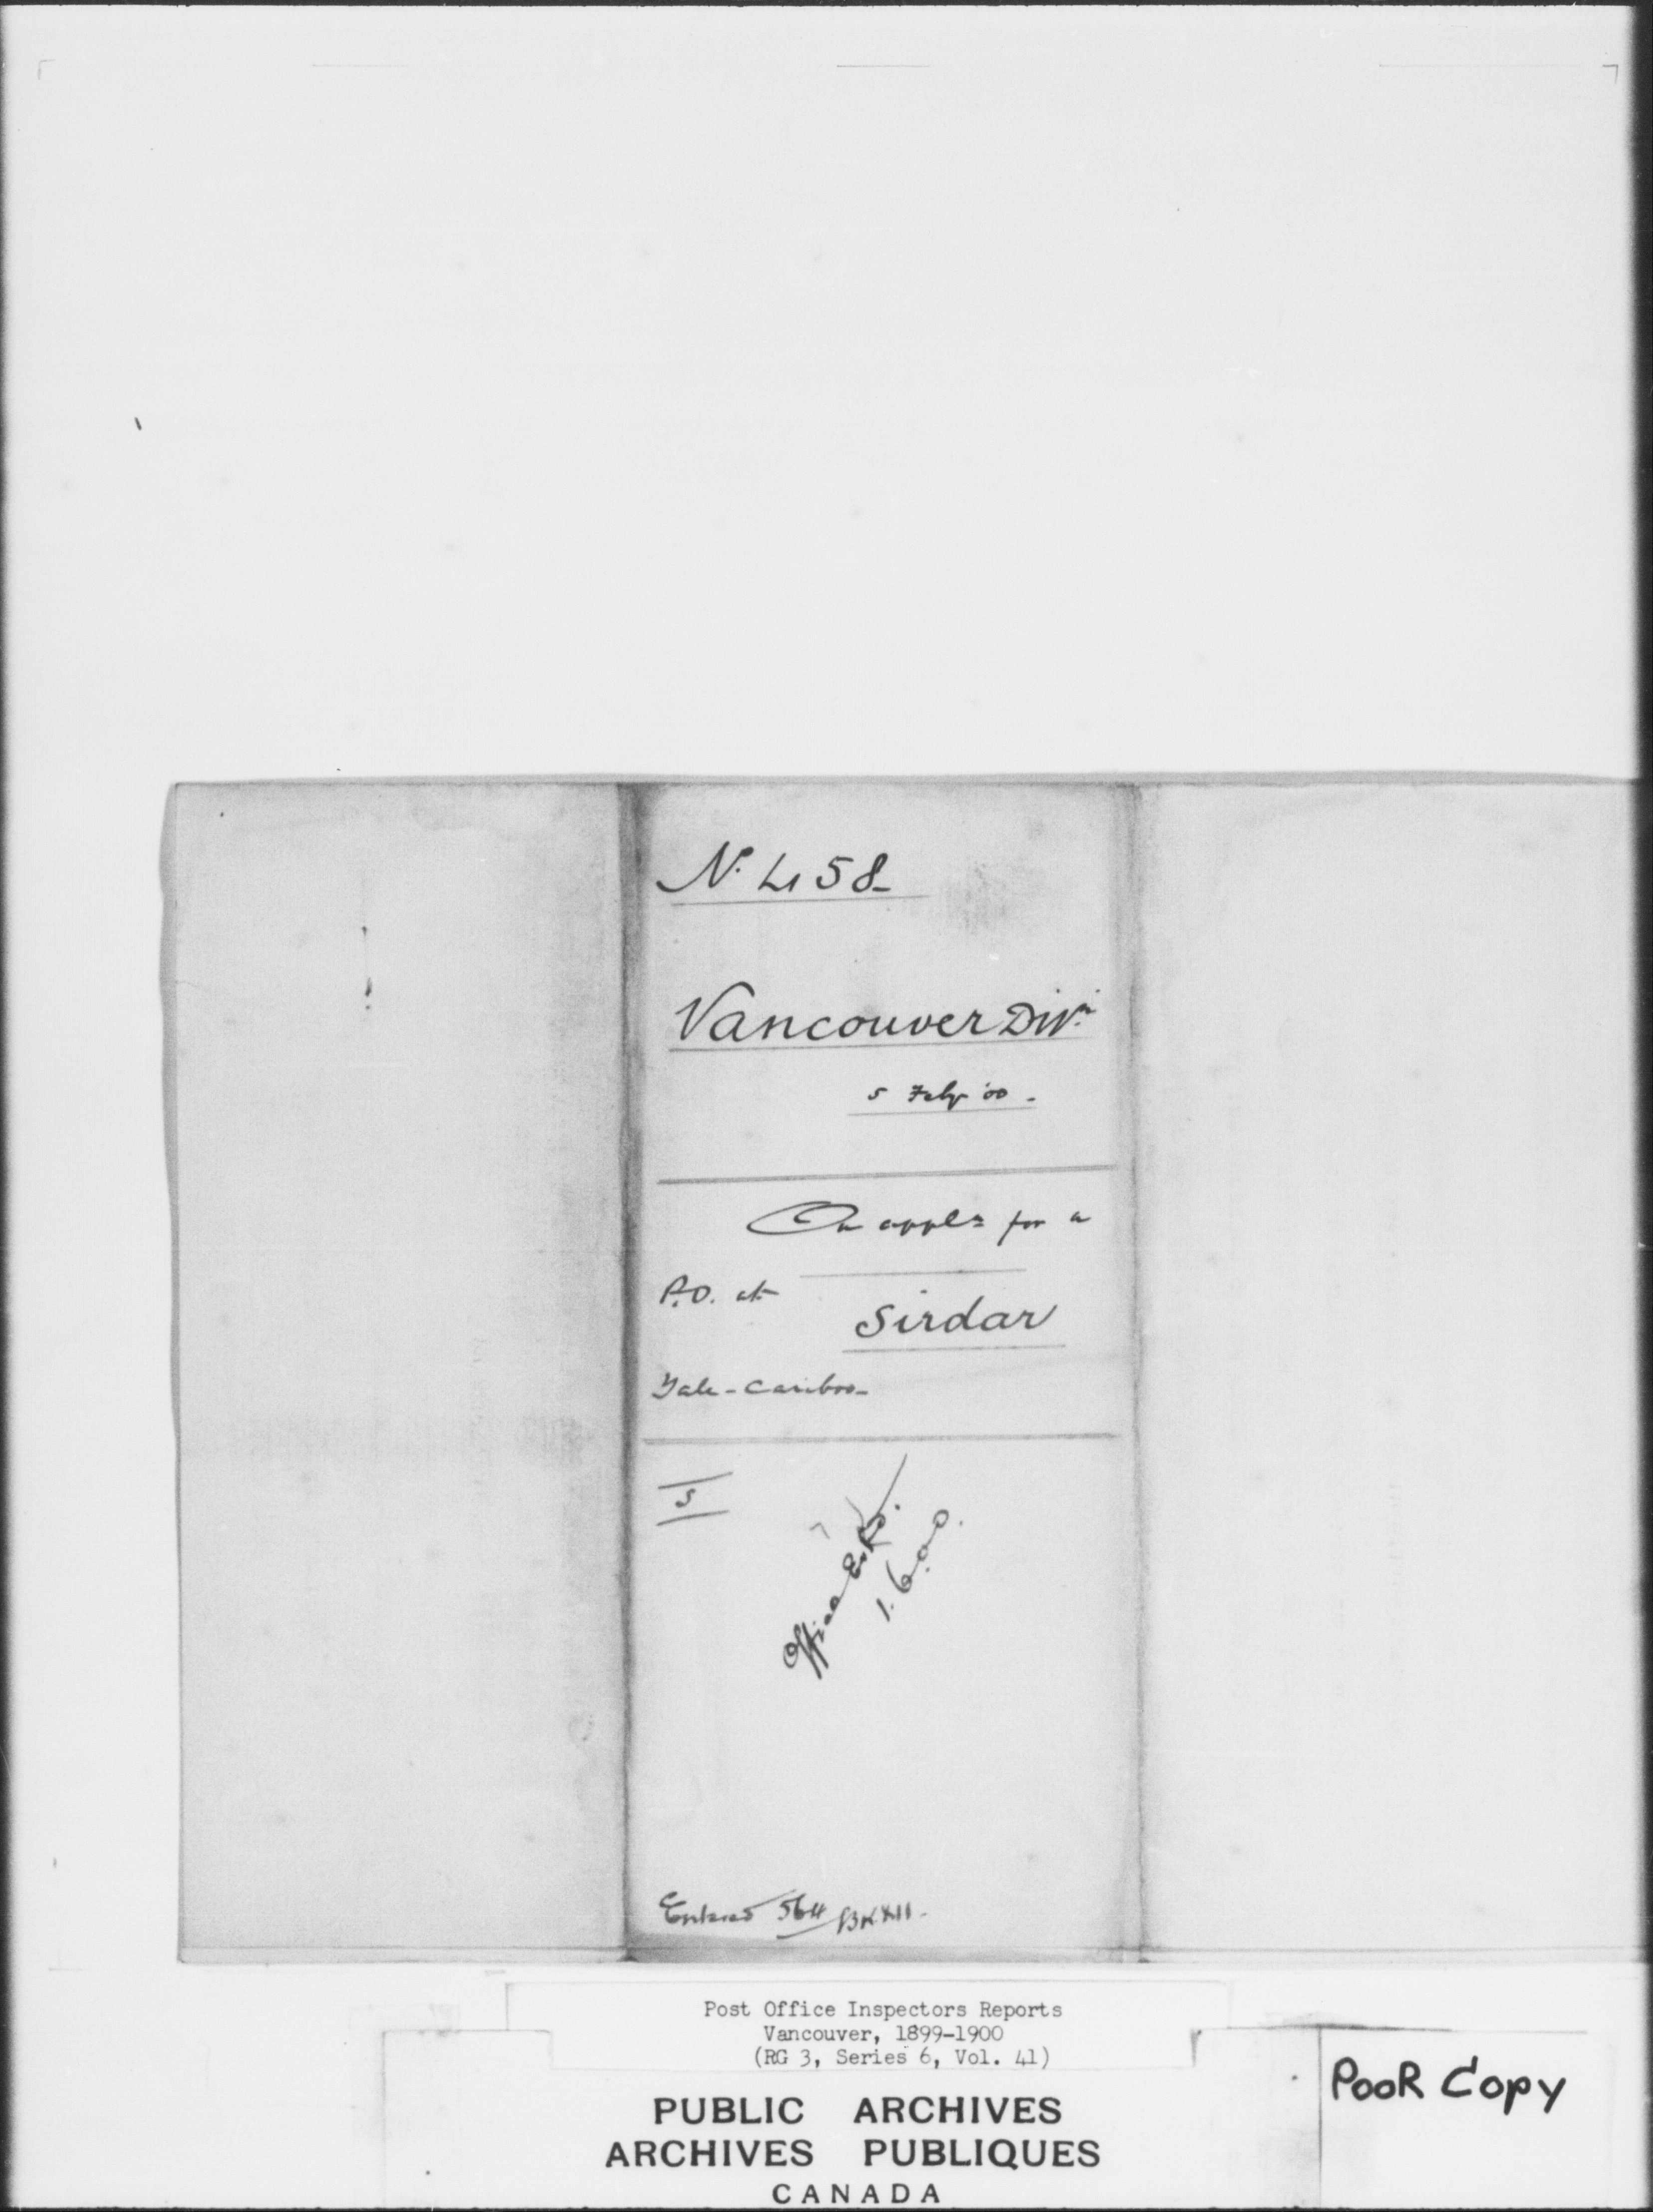 No. 458-
Vancouver Divn.
5 Feby '00.
On appln for a
P.O. at
Sirdar
Yale-Cariboo-
5
Office Est.
1.6.00.
Entered 564 BK XII.
Post Office Inspectors Reports
Vancouver, 1899-1900
(RG 3, Series 6, Vol. 41)
PUBLIC ARCHIVES
ARCHIVES PUBLIQUES
CANADA
POOR COPY